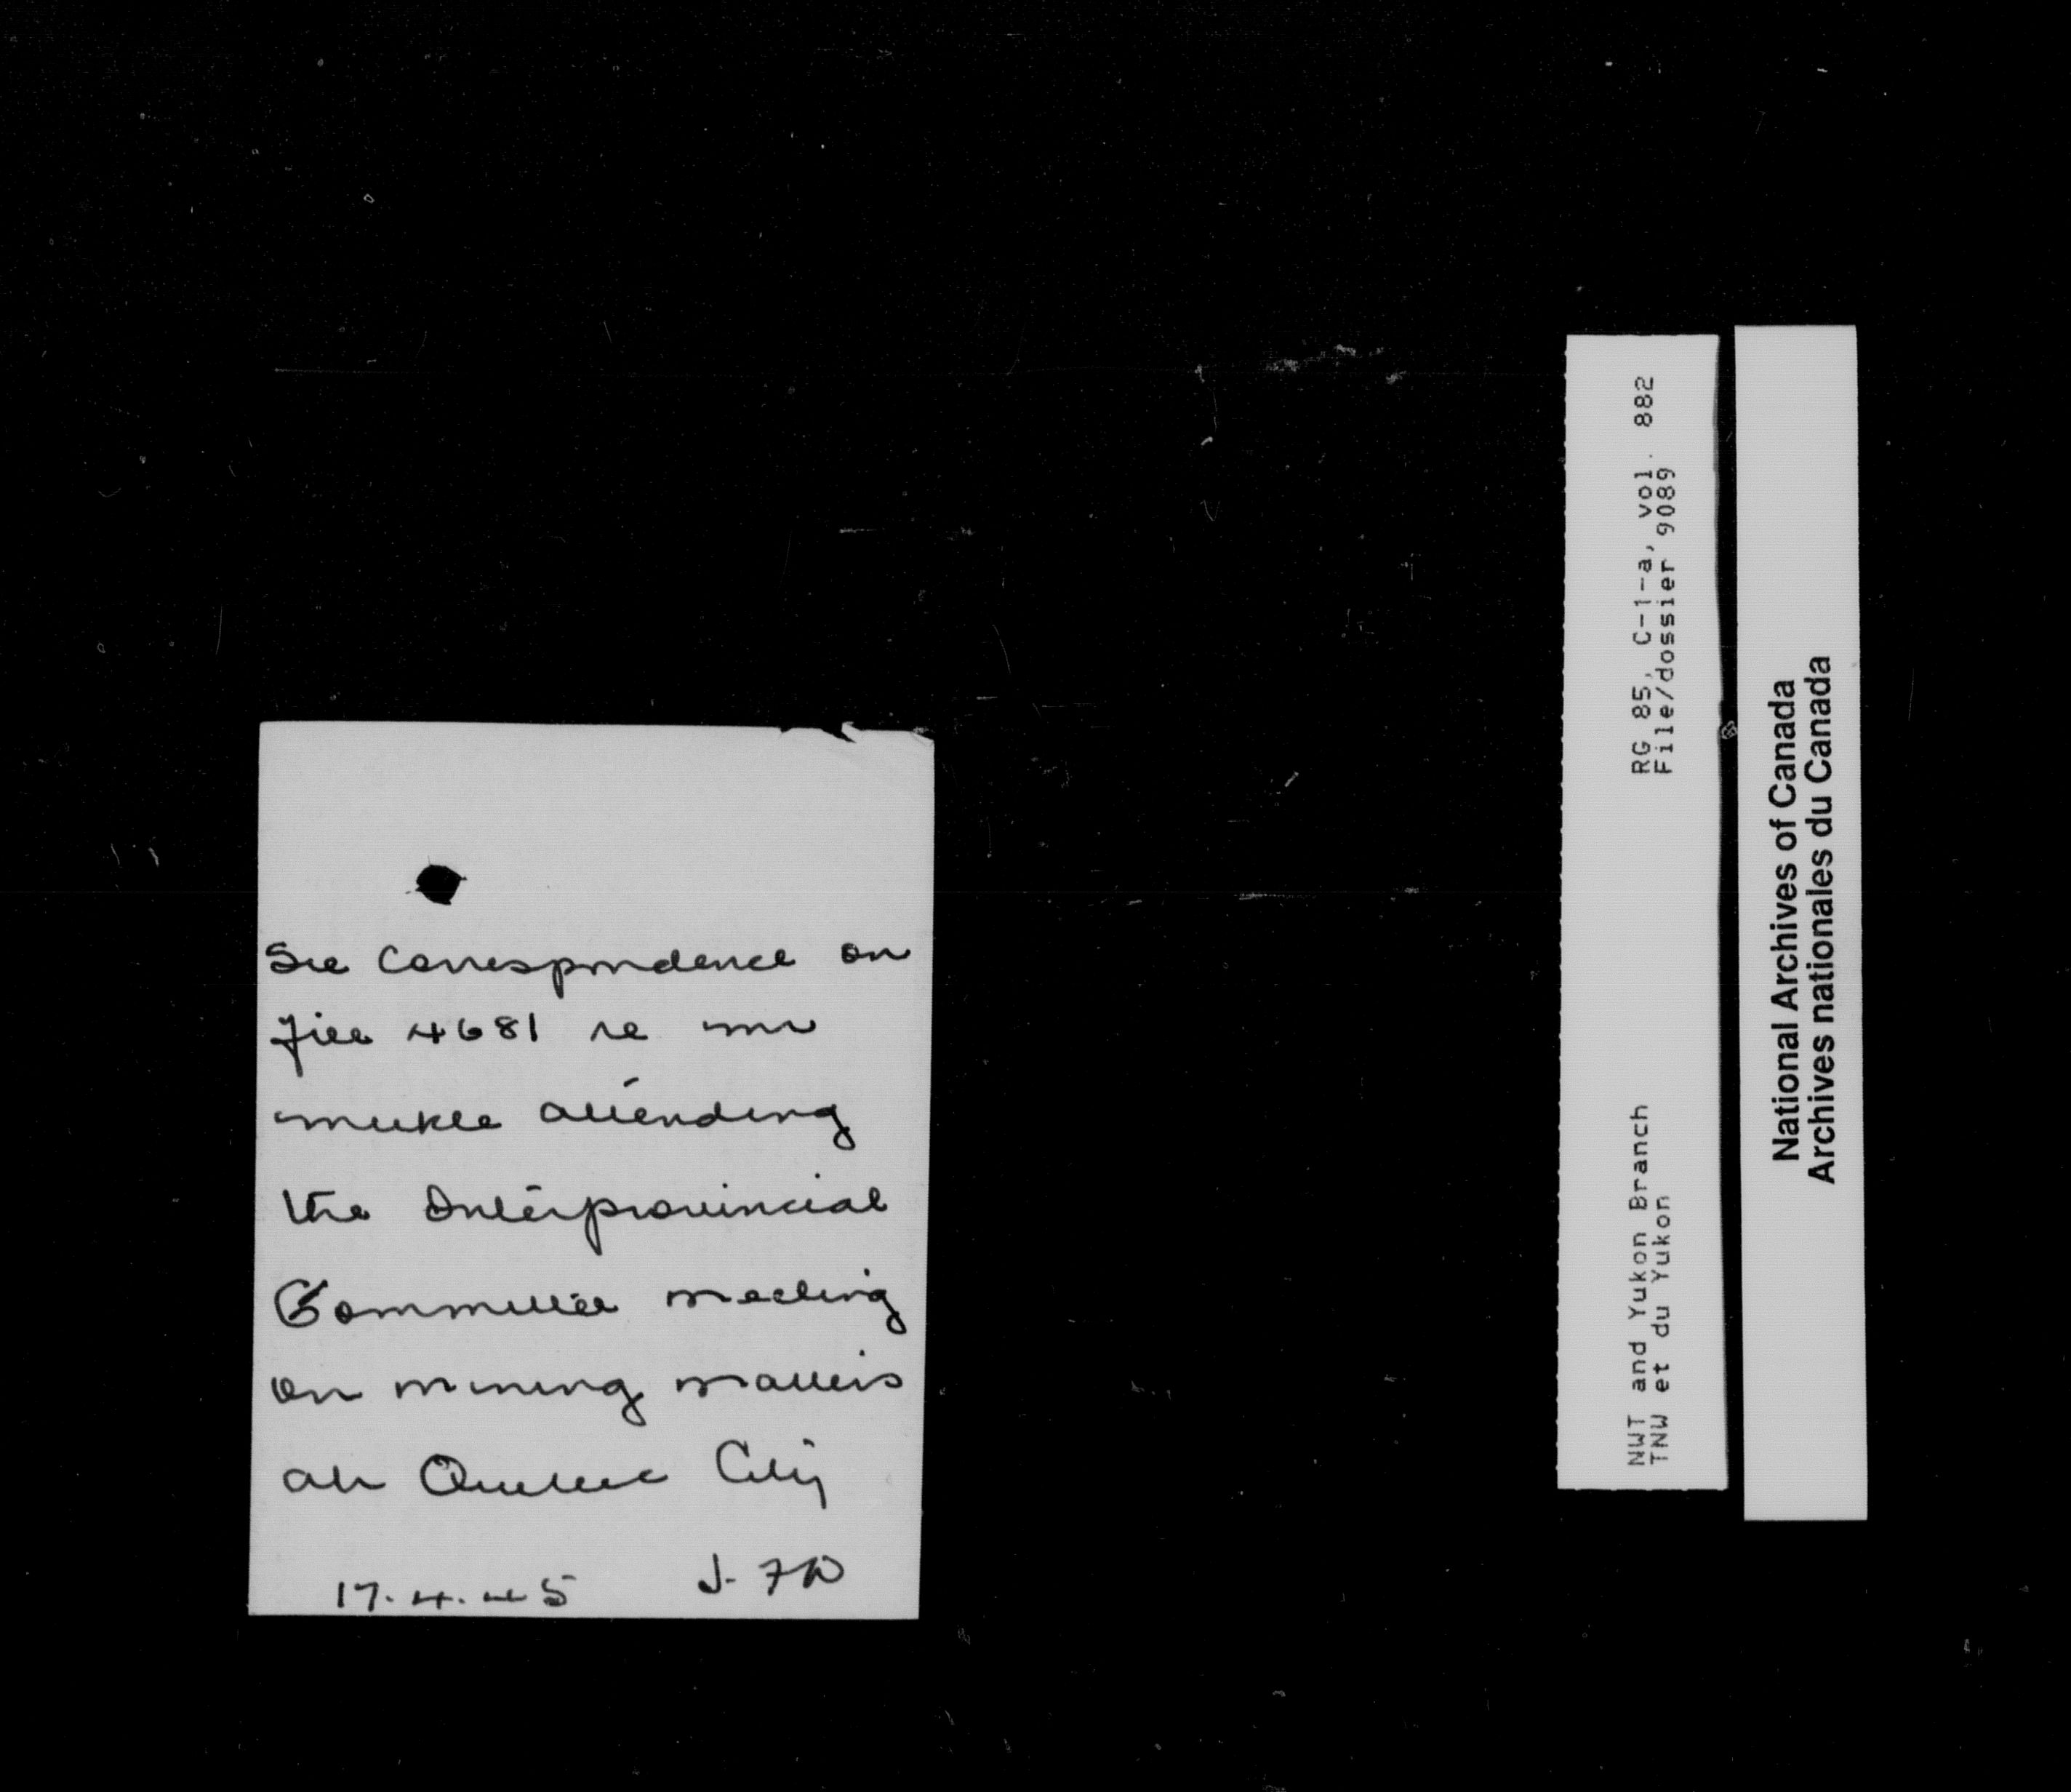 See correspondence on
file 4681 re Mr
Meikle attending
the Interprovincial
Committee meeting
on mining matters
at Quebec City
17.4.45 J.F.D
NWT and Yukon Branch RG 85, C-1-a, vol. 882
TNW et du Yukon File/dossier 9089
National Archives of Canada
Archives nationales du Canada